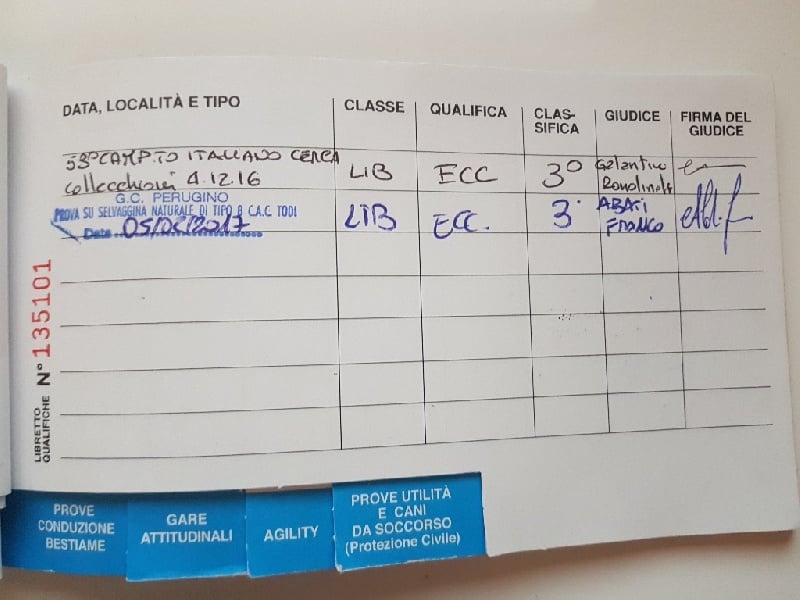 DATA, LOCALITÀ E TIPO
CLASSE
QUALIFICA
CLAS-
SIFICA
GIUDICE
FIRMA DEL
GIUDICE
53° CAMP.TO ITALIANO CERCA
4.12.16
LIB
ECC
3°
Galantino
G.C. PERUGINO
PROVA SU SELVAGGINA NATURALE DI TIPO B C.A.C TODI
Data
LIB
ECC.
3°
ABATI
FRANCO
LIBRETTO
QUALIFICHE N° 135101
PROVE
CONDUZIONE
BESTIAME
GARE
ATTITUDINALI
AGILITY
PROVE UTILITÀ
E CANI
DA SOCCORSO
(Protezione Civile)